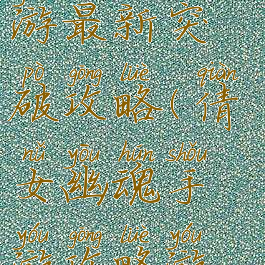 游最新突
pò gōng lüè qiàn
破攻略(倩
nǚ yōu hún shǒu
女幽魂手
yóu gōng lüè yóu
游攻略游